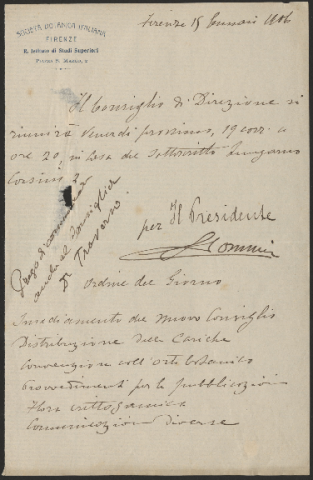 SOCIETÀ BOTANICA ITALIANA
FIRENZE
R. Istituto di Studi Superiori
Piazza S. Marco, 2
Firenze 15 Gennaio 1906
Il Consiglio di Direzione si
riunirà Venerdì prossimo, 19 corr. a
ore 20, in Casa del sottoscritto Lungarno
Corsini 2
per Il Presidente
Prego di comunicare
anche al Consigliere
Dr Traverso
Ordine del Giorno
Insediamento del Nuovo Consiglio
Distribuzione delle Cariche
Convenzione coll'orto botanico
Provvedimenti per la pubblicazione
Flora crittogamica
Comunicazioni diverse